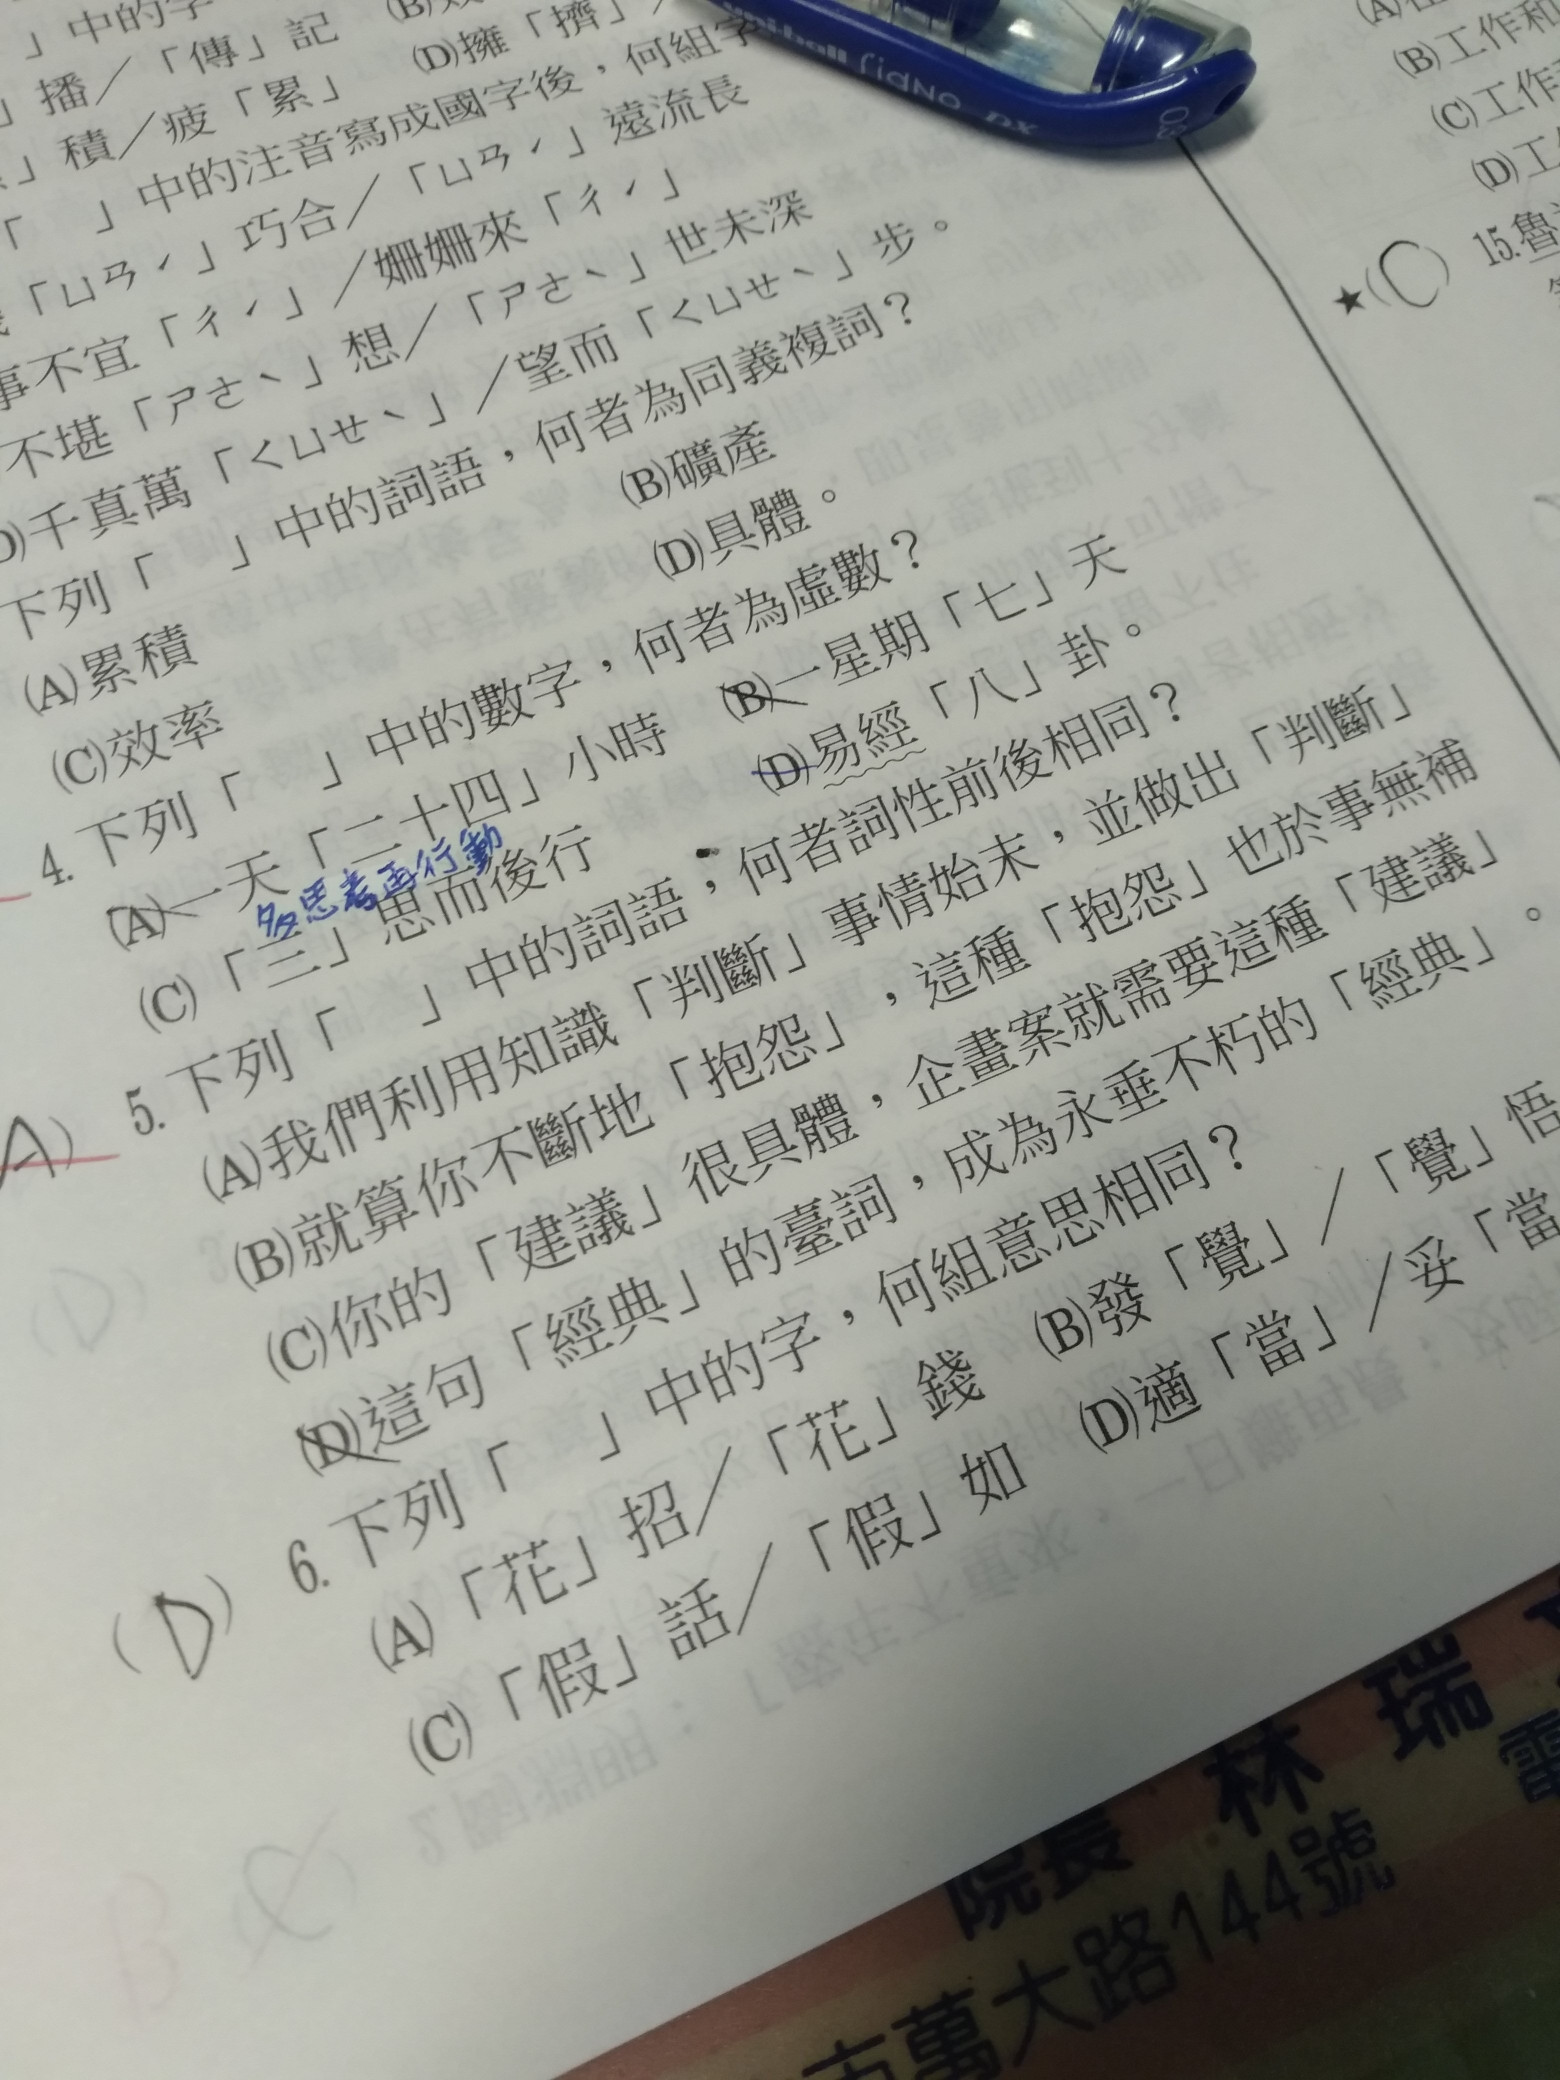 」中的字
」播／「傳」記
」積／疲「累」
(D)擁「擠」
「　」中的注音寫成國字後，何組字
「ㄩㄢˊ」巧合／「ㄩㄢˊ」遠流長
事不宜「ㄔˊ」／姍姍來「ㄔˊ」
不堪「ㄕㄜˋ」想／「ㄕㄜˋ」世未深
D)千真萬「ㄑㄩㄝˋ」／望而「ㄑㄩㄝˋ」步。
下列「　」中的詞語，何者為同義複詞？
(A)累積　(B)礦產
(C)效率　(D)具體。
4. 下列「　」中的數字，何者為虛數？
(A)一天「二十四」小時　(B)一星期「七」天
多思考再行動
(C)「三」思而後行　(D)易經「八」卦。
A) 5. 下列「　」中的詞語，何者詞性前後相同？
(A)我們利用知識「判斷」事情始末，並做出「判斷」
(B)就算你不斷地「抱怨」，這種「抱怨」也於事無補
(C)你的「建議」很具體，企畫案就需要這種「建議」
(D)這句「經典」的臺詞，成為永垂不朽的「經典」。
(D) 6. 下列「　」中的字，何組意思相同？
(A)「花」招／「花」錢　(B)發「覺」／「覺」悟
(C)「假」話／「假」如　(D)適「當」／妥「當
uni-ball Signo DX
(B)工作和
(C)工作
(D)工
★(C) 15.魯
院長 林 瑞
電
萬大路144號